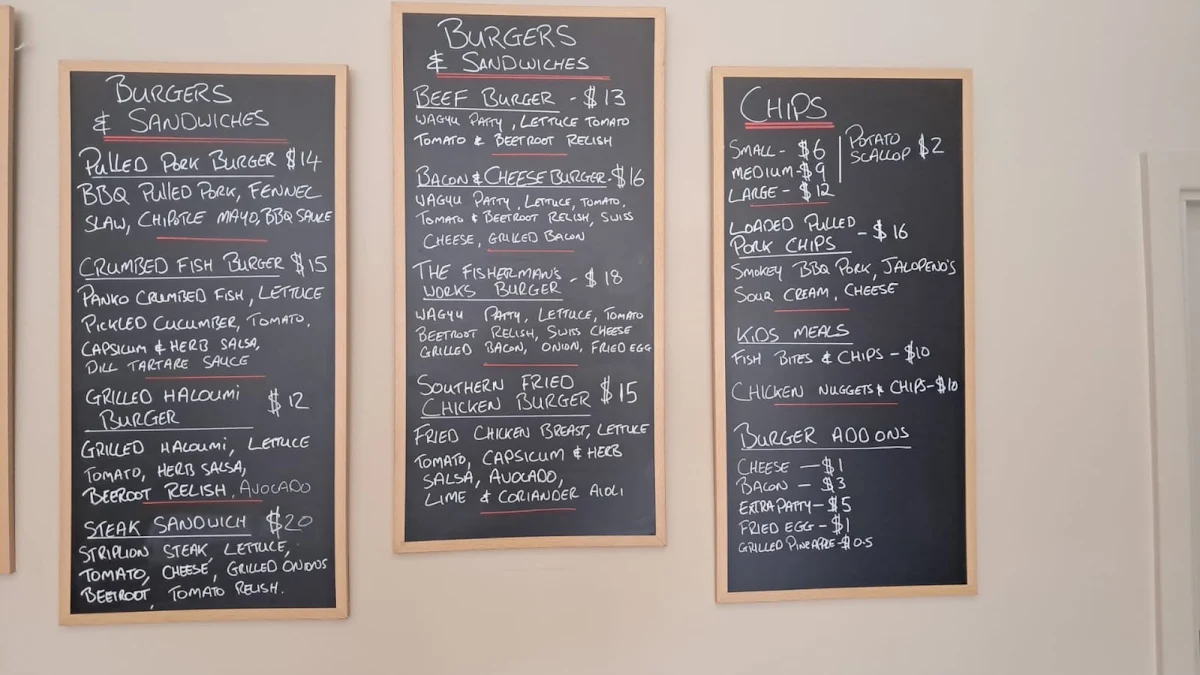 BURGERS
& SANDWICHES
PULLED PORK BURGER $14
BBQ PULLED PORK, FENNEL
SLAW, CHIPOTLE MAYO, BBQ SAUCE
CRUMBED FISH BURGER $15
PANKO CRUMBED FISH, LETTUCE
PICKLED CUCUMBER, TOMATO,
CAPSICUM & HERB SALSA,
DILL TARTARE SAUCE
GRILLED HALOUMI
BURGER $12
GRILLED HALOUMI, LETTUCE
TOMATO, HERB SALSA,
BEEROOT RELISH, AVOCADO
STEAK SANDWICH $20
STRIPLION STEAK, LETTUCE,
TOMATO, CHEESE, GRILLED ONIONS
BEETROOT, TOMATO RELISH.
BURGERS
& SANDWICHES
BEEF BURGER - $13
WAGYU PATTY, LETTUCE TOMATO
TOMATO & BEETROOT RELISH
BACON & CHEESE BURGER - $16
WAGYU PATTY, LETTUCE, TOMATO,
TOMATO & BEETROOT RELISH, SWISS
CHEESE, GRILLED BACON
THE FISHERMAN'S
WORKS BURGER - $18
WAGYU PATTY, LETTUCE, TOMATO
BEETROOT RELISH, SWISS CHEESE
GRILLED BACON, ONION, FRIED EGG
SOUTHERN FRIED
CHICKEN BURGER $15
FRIED CHICKEN BREAST, LETTUCE
TOMATO, CAPSICUM & HERB
SALSA, AVOCADO,
LIME & CORIANDER AIOLI
CHIPS
SMALL - $6
MEDIUM - $9
LARGE - $12
POTATO
SCALLOP $2
LOADED PULLED
PORK CHIPS - $16
SMOKEY BBQ PORK, JALOPENO'S
SOUR CREAM, CHEESE
KIDS MEALS
FISH BITES & CHIPS - $10
CHICKEN NUGGETS & CHIPS - $10
BURGER ADD ONS
CHEESE - $1
BACON - $3
EXTRA PATTY - $5
FRIED EGG - $1
GRILLED PINEAPPLE - $0.5